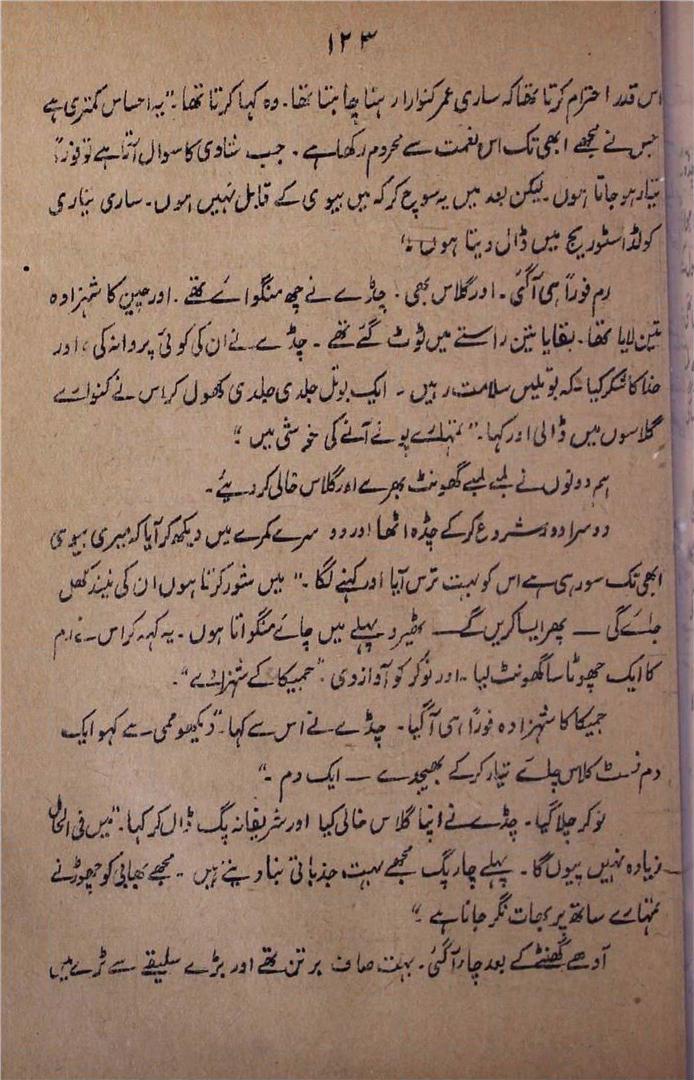 ۱۲۳
اس قدر احترام کرتا تھا کہ ساری عمر کنوارا رہنا چاہتا تھا۔ وہ کہا کرتا تھا۔ "یہ احساس کمتری ہے
جس نے مجھے ابھی تک اس نعمت سے محروم رکھا ہے۔ جب شادی کا سوال آتا ہے تو فوراً
تیار ہو جاتا ہوں۔ لیکن بعد میں یہ سوچ کر کہ میں بیوی کے قابل نہیں ہوں۔ ساری تیاری
کولڈ اسٹوریج میں ڈال دیتا ہوں۔"
رم فوراً ہی آ گئی۔ اور گلاس بھی۔ چڈے نے چھ منگوائے تھے۔ اور چین کا شہزادہ
تین لایا تھا۔ بقایا تین راستے میں ٹوٹ گئے تھے۔ چڈے نے ان کی کوئی پروا نہ کی، اور
خدا کا شکر کیا۔ کہ بوتلیں سلامت رہیں۔ ایک بوتل جلدی جلدی کھول کر اس نے کنوارے
گلاسوں میں ڈالی اور کہا۔ "تمہارے پونے آنے کی خوشی میں"
ہم دونوں نے لمبے لمبے گھونٹ بھرے اور گلاس خالی کر دیئے۔
دوسرا دور شروع کرکے چڈہ اٹھا اور دوسرے کمرے میں دیکھ کر آیا کہ میری بیوی
ابھی تک سو رہی ہے اس کو بہت ترس آیا اور کہنے لگا۔ "میں شور کرتا ہوں ان کی نیند کھل
جائے گی — پھر ایسا کریں گے — ٹھیرو پہلے میں چائے منگواتا ہوں۔ یہ کہہ کر اس نے رم
کا ایک چھوٹا سا گھونٹ لیا۔ اور نوکر کو آواز دی۔ "جمیکا کے شہزادے"۔
جمیکا کا شہزادہ فوراً ہی آ گیا۔ چڈے نے اس سے کہا۔ "دیکھو ممی سے کہو ایک
دم فسٹ کلاس چائے تیار کرکے بھیجدے — ایک دم۔"
نوکر چلا گیا۔ چڈے نے اپنا گلاس خالی کیا اور شریفانہ پگ ڈال کر کہا۔ "میں فی الحال
زیادہ نہیں پیوں گا۔ پہلے چار پگ مجھے بہت جذباتی بنا دیتے ہیں۔ مجھے بھابی کو چھوڑنے
تمہارے ساتھ پربھات نگر جانا ہے۔"
آدھے گھنٹے کے بعد چاء آ گئی۔ بہت صاف برتن تھے اور بڑے سلیقے سے ٹرے میں